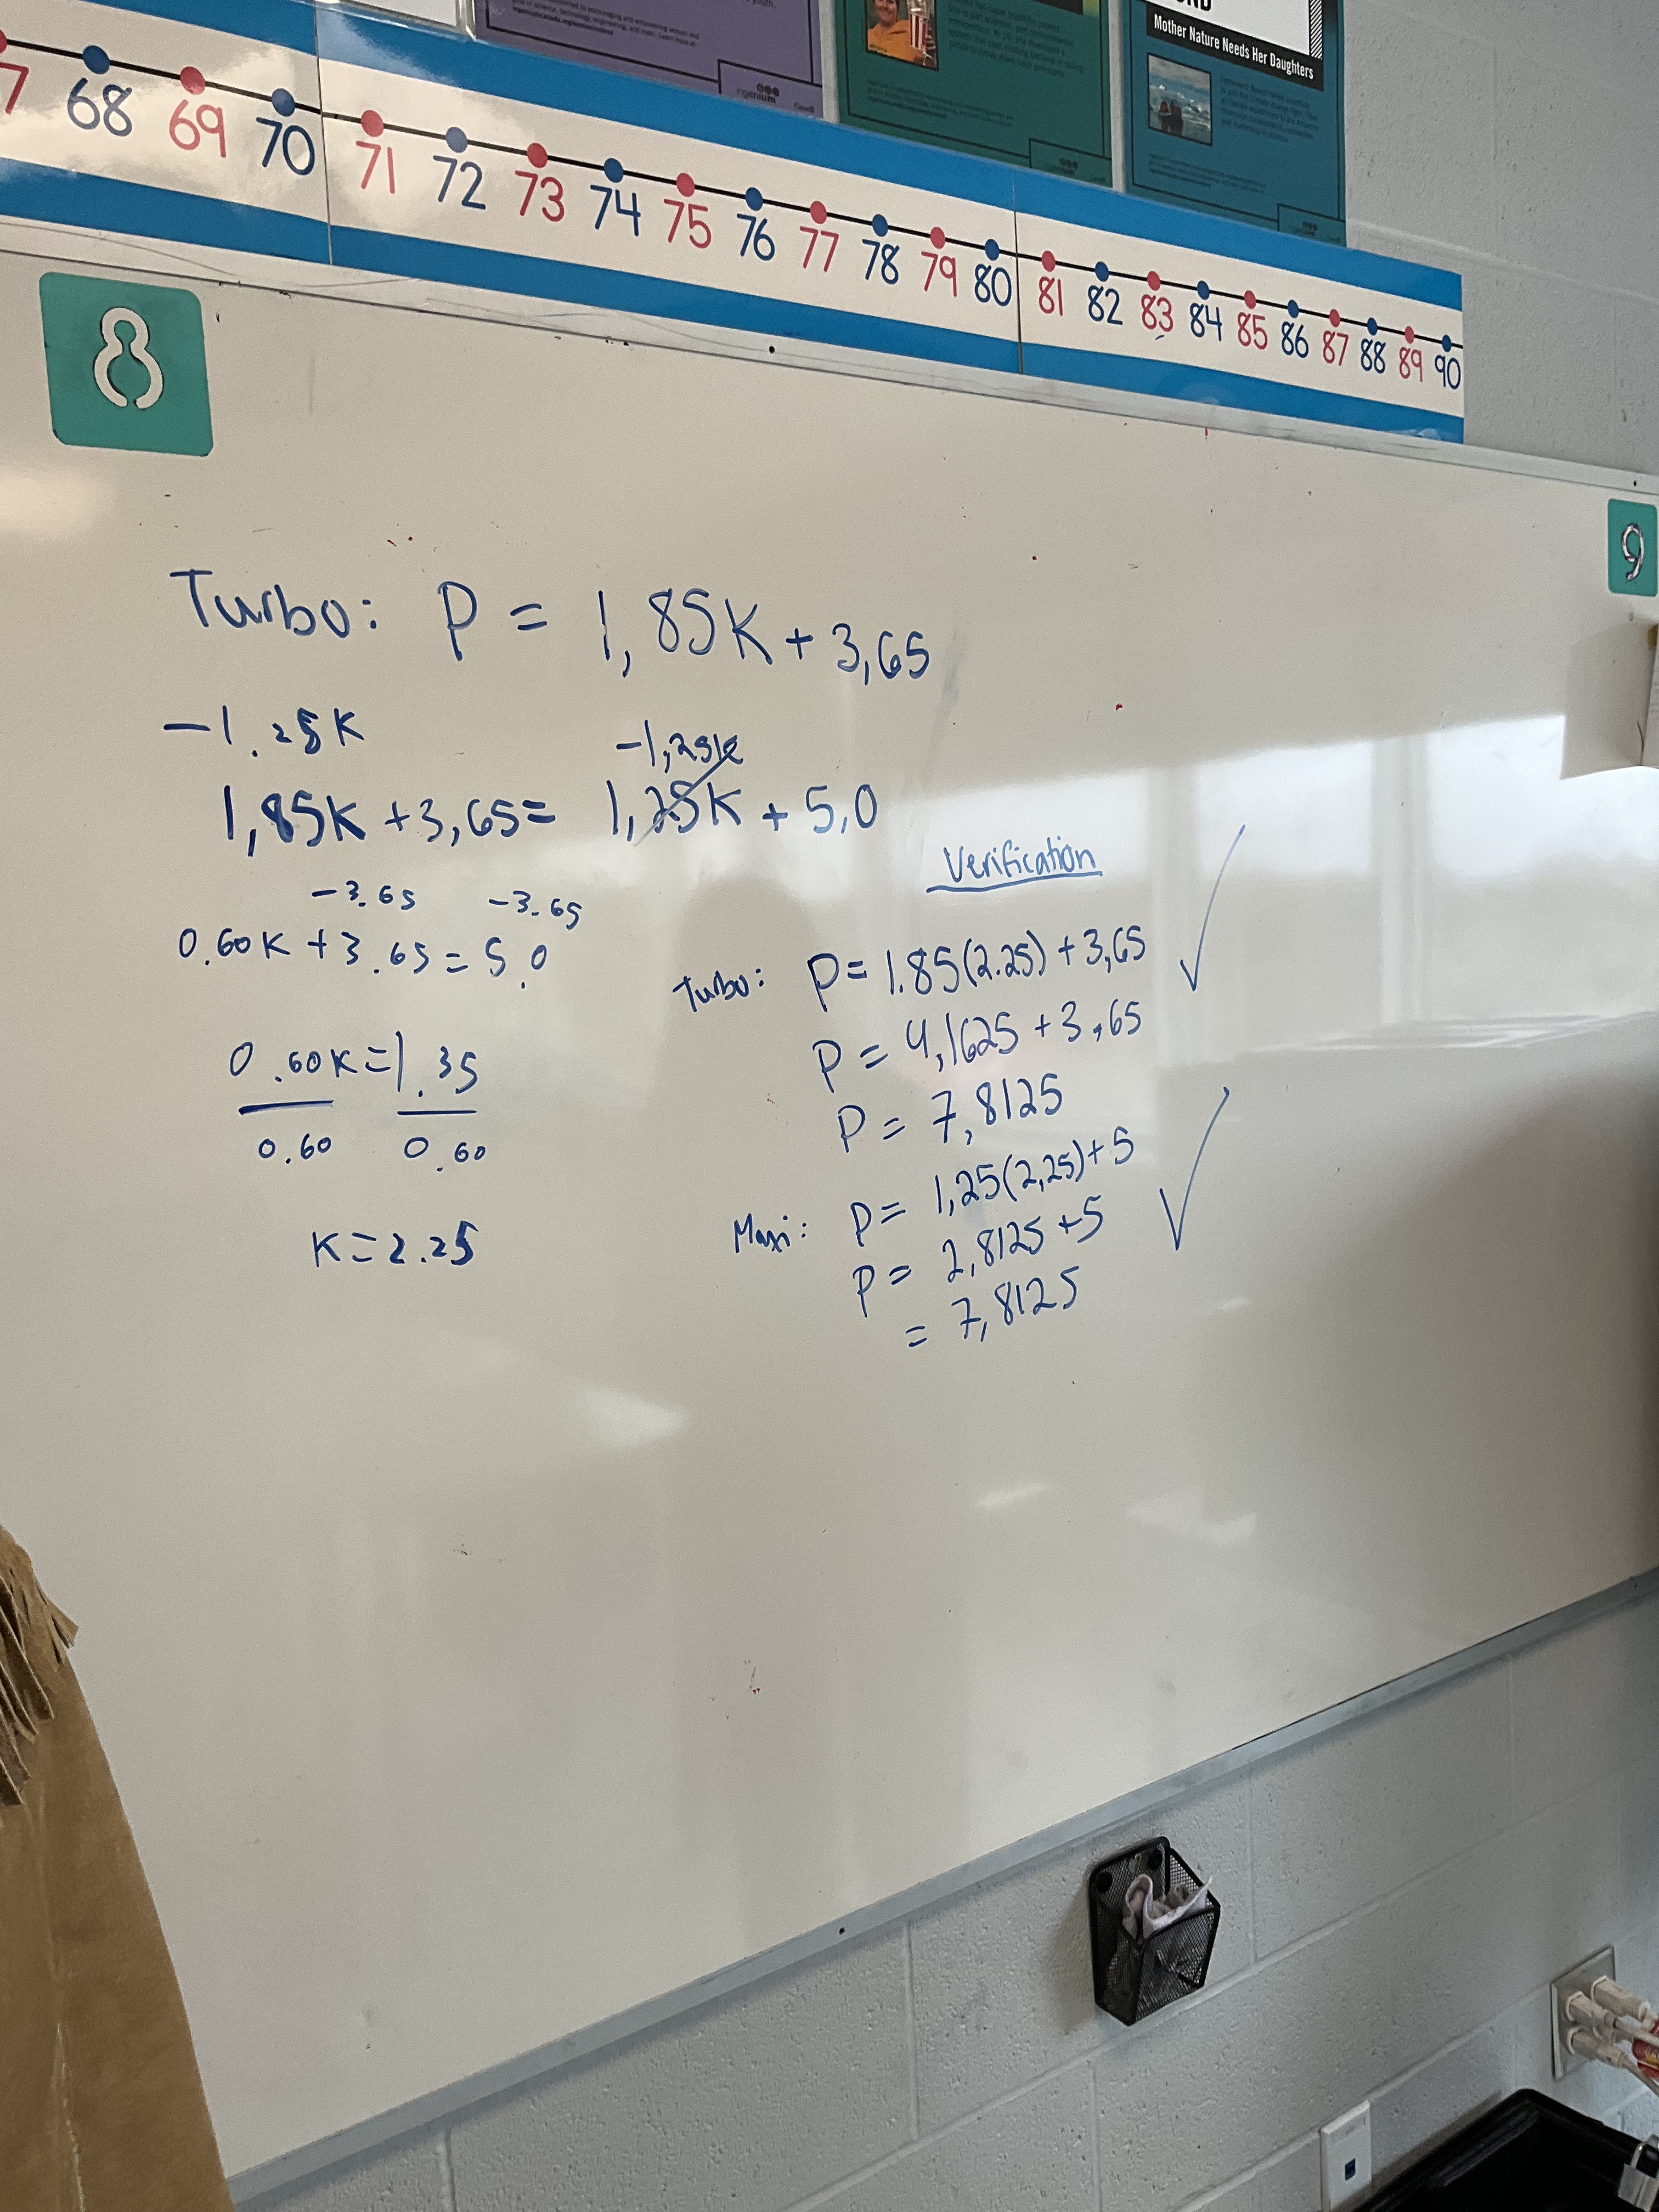 Mother Nature Needs Her Daughters
ingenium
7 68 69 70 71 72 73 74 75 76 77 78 79 80 81 82 83 84 85 86 87 88 89 90
8
9
Turbo: P = 1,85K + 3,65
-1.25K -1,25K
1,85K + 3,65 = 1,25K + 5,0
-3.65 -3.65
0.60K + 3.65 = 5.0
0.60K = 1.35
0.60 0.60
K = 2.25
Verification
Turbo: P = 1.85(2.25) + 3,65 ✓
P = 4,1625 + 3,65
P = 7,8125
Maxi: P = 1,25(2,25) + 5 ✓
P = 2,8125 + 5
= 7,8125